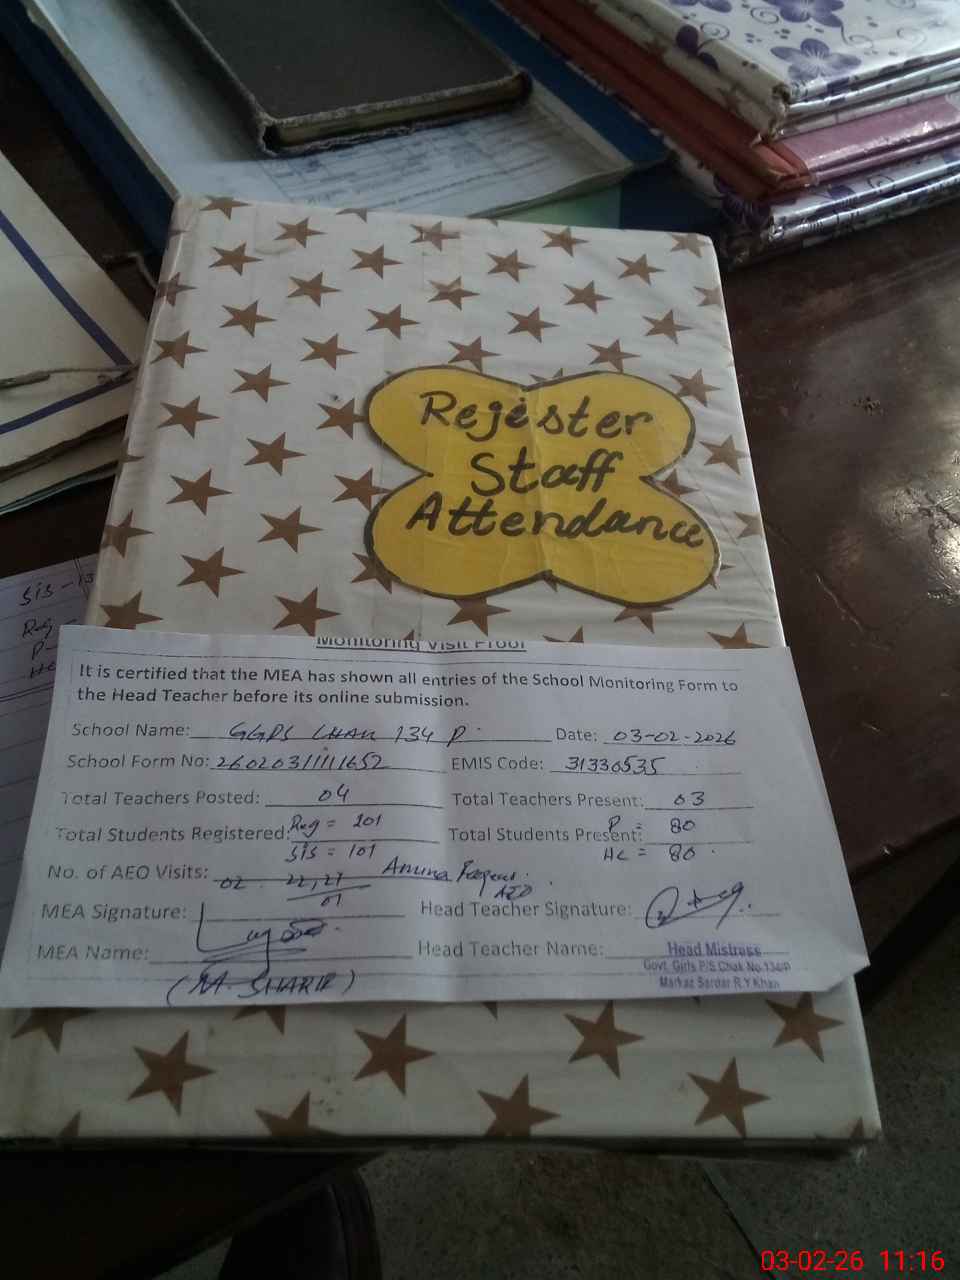 Regester
Staff
Attendance
SIS - 13
Reg -
P -
HC
Monitoring Visit Proof
It is certified that the MEA has shown all entries of the School Monitoring Form to
the Head Teacher before its online submission.
School Name: GGPS CHAK 134 P. Date: 03-02-2026
School Form No: 26020311111652 EMIS Code: 31330535
Total Teachers Posted: 04 Total Teachers Present: 03
Total Students Registered: Reg = 101 Total Students Present: P = 80
SIS = 101 HC = 80
No. of AEO Visits: 02 22,27 Amina
01 AEO
MEA Signature: Head Teacher Signature:
MEA Name: Head Teacher Name: Head Mistress
(M. SHARIF) Govt. Girls P/S Chak No.134/P
Markaz Sardar R.Y Khan
03-02-26 11:16